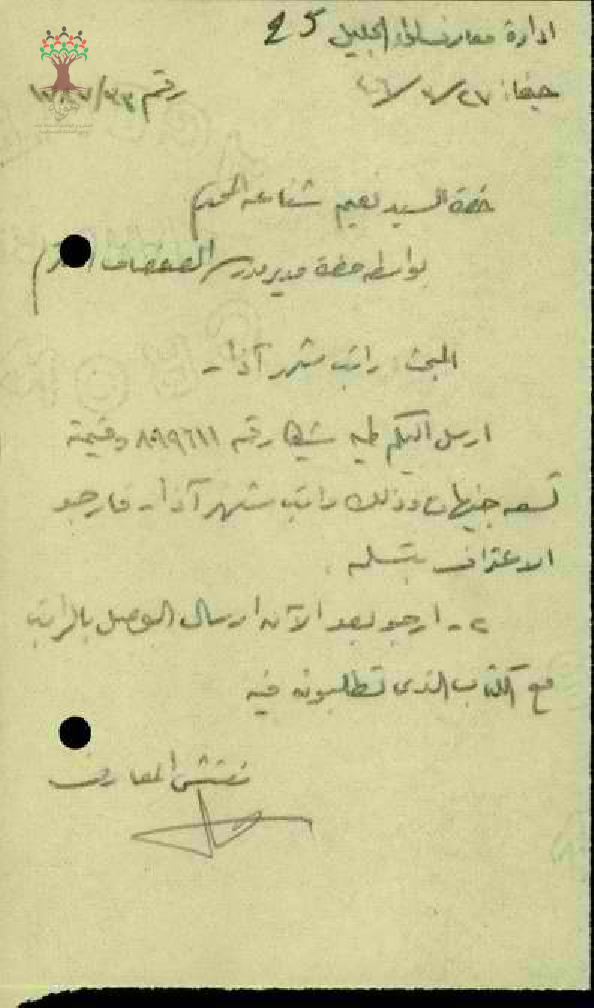 ادارة معارف لواء الجليل 25
حيفا: ٢٧/٣/ رقم
حضرة السيد نعيم شفاعه المحترم
بواسطة حضرة مدير مدرسة الصفصاف
المبحث: راتب شهر آذار
ارسل اليكم طيه شيكا رقم ٨٩٩٦١١ وقيمته
تسعه جنيهات وذلك راتب شهر آذار فارجو
الاعتراف بتسلمه.
٢ - ارجو بعد الآن ارسال الوصل بالراتب
مع الكتاب الذي تطلبونه فيه
مفتش المعارف